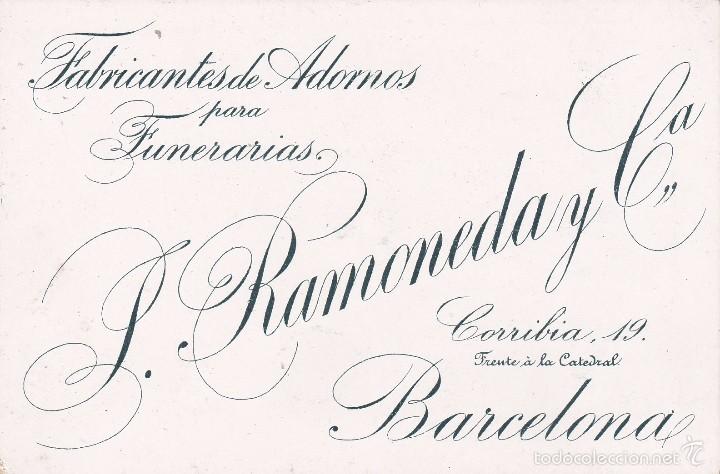 Fabricantes de Adornos
para
Funerarias.
J. Ramoneda y Cª
Corribia, 19.
Frente à la Catedral
Barcelona
todocoleccion.net